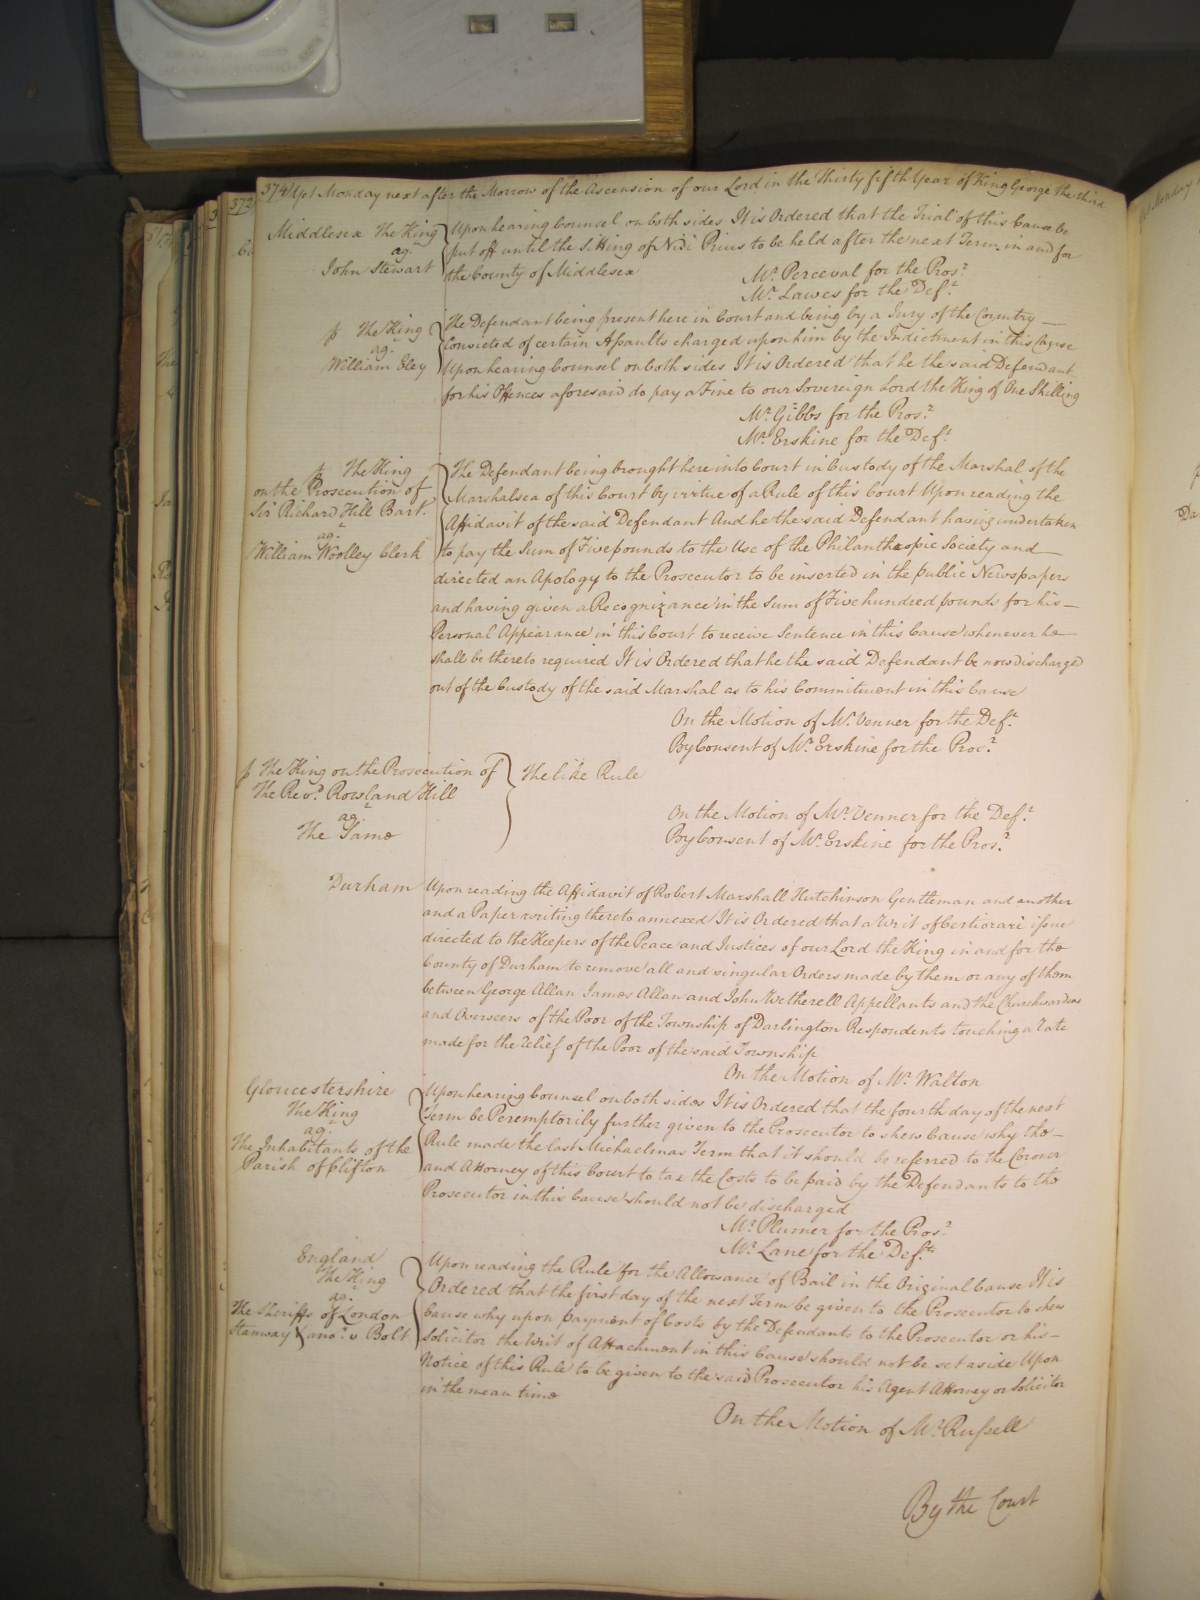 374 Yet Monday next after the Morrow of the Ascension of our Lord in the Thirty fifth Year of King George the third
Middlesex The King
agt.
John Stewart
Upon hearing Counsel on both sides It is Ordered that the Trial of this Cause be
put off until the Sitting of Nisi Prius to be held after the next Term in and for
the County of Middlesex
Mr. Perceval for the Prosr.
Mr. Lawes for the Deft.
The King
agt.
William Eley
The Defendant being present here in Court and being by a Jury of the Country
Convicted of certain Assaults charged upon him by the Indictment in this Cause
Upon hearing Counsel on both sides It is Ordered that he the said Defendant
for his Offences aforesaid do pay a Fine to our Sovereign Lord the King of One Shilling
Mr. Gibbs for the Prosr.
Mr. Erskine for the Deft.
The King
on the Prosecution of
Sir Richard Hill Bart.
agt.
William Woolley Clerk
The Defendant being brought here into Court in Custody of the Marshal of the
Marshalsea of this Court by virtue of a Rule of this Court Upon reading the
Affidavit of the said Defendant And he the said Defendant having undertaken
to pay the Sum of Five pounds to the Use of the Philanthropic Society and
directed an Apology to the Prosecutor to be inserted in the public Newspapers
and having given a Recognizance in the Sum of Five hundred pounds for his
Personal Appearance in this Court to receive Sentence in this Cause whenever he
shall be thereto required It is Ordered that he the said Defendant be now discharged
out of the Custody of the said Marshal as to his Commitment in this Cause
On the Motion of Mr. Venner for the Deft.
By Consent of Mr. Erskine for the Prosr.
The King on the Prosecution of
The Revd. Rowland Hill
agt.
The Same
The like Rule
On the Motion of Mr. Venner for the Deft.
By Consent of Mr. Erskine for the Prosr.
Durham
Upon reading the Affidavit of Robert Marshall Hutchinson Gentleman and another
and a Paper writing thereto annexed It is Ordered that a Writ of Certiorari issue
directed to the Keepers of the Peace and Justices of our Lord the King in and for the
County of Durham to remove all and singular Orders made by them or any of them
between George Allan James Allan and John Wetherell Appellants and the Churchwardens
and Overseers of the Poor of the Township of Darlington Respondents touching a rate
made for the relief of the Poor of the said Township
On the Motion of Mr. Walton
Gloucestershire
The King
agt.
The Inhabitants of the
Parish of Clifton
Upon hearing Counsel on both sides It is Ordered that the fourth day of the next
Term be Peremptorily further given to the Prosecutor to shew Cause why the
Rule made the last Michaelmas Term that it should be referred to the Coroner
and Attorney of this Court to tax the Costs to be paid by the Defendants to the
Prosecutor in this Cause should not be discharged
Mr. Plumer for the Prosr.
Mr. Lane for the Defts.
England
The King
agt.
The Sheriffs of London
Stanway & anor. v Bolt
Upon reading the Rule for the Allowance of Bail in the Original Cause It is
Ordered that the first day of the next Term be given to the Prosecutor to shew
Cause why upon payment of Costs by the Defendants to the Prosecutor or his
Solicitor the Writ of Attachment in this Cause should not be set aside Upon
Notice of this Rule to be given to the said Prosecutor his Agent Attorney or Solicitor
in the mean time
On the Motion of Mr. Russell
By the Court